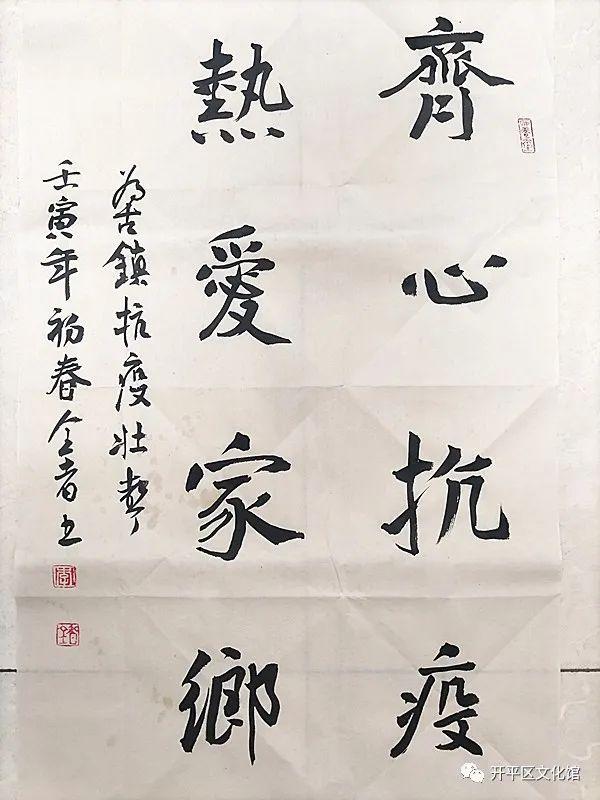 齊心抗疫
熱愛家鄉
為古鎮抗疫壯聲
壬寅年初春全者书
开平区文化馆